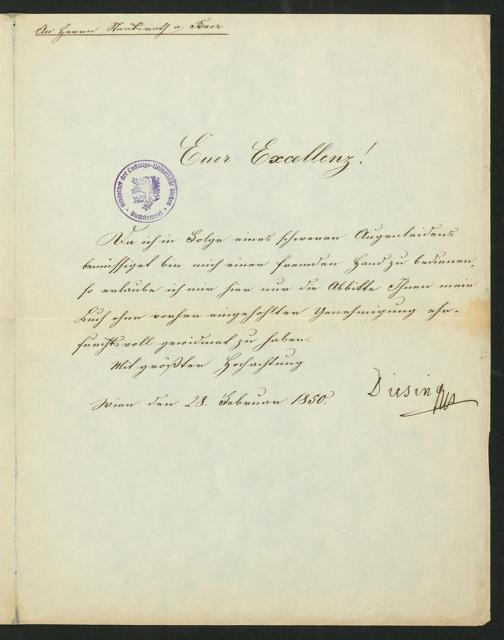 An Herrn Staatsrath v. Baer
Euer Excellenz!
Bibliothek der Ludwigs-Universität Giessen
Buchstempel
Da ich in Folge eines schweren Augenleidens
bemüssiget bin mich einer fremden Hand zu bedienen,
so erlaube ich mir hier nur die Abbitte Ihnen mein
Buch ohne vorher eingeholter Genehmigung ehr-
furchtsvoll gewidmet zu haben.
Mit größter Hochachtung
Diesing
Wien den 28. Februar 1850.